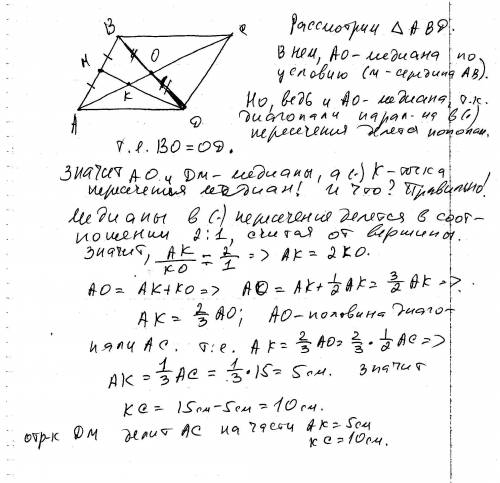 B
C
M
O
K
A
D
Рассмотрим △ ABD.
В нем, AO - медиана по
условию (M - середина AB).
Но, ведь и AO - медиана, т.к.
диагонали парал-ма в (·)
пересечения делятся пополам.
т.е. BO = OD.
Значит AO и DM - медианы, а (·) K - точка
пересечения медиан! И что? Правильно!
Медианы в (·) пересечения делятся в соот-
ношении 2:1, считая от вершины.
Значит, AK/KO = 2/1 => AK = 2KO.
AO = AK + KO => AO = AK + 1/2 AK = 3/2 AK =>
AK = 2/3 AO; AO - половина диаго-
нали AC. т.е. AK = 2/3 AO = 2/3 · 1/2 AC =>
AK = 1/3 AC = 1/3 · 15 = 5см. Значит
KC = 15см - 5см = 10см.
отр-к DM делит AC на части AK = 5см
KC = 10см.